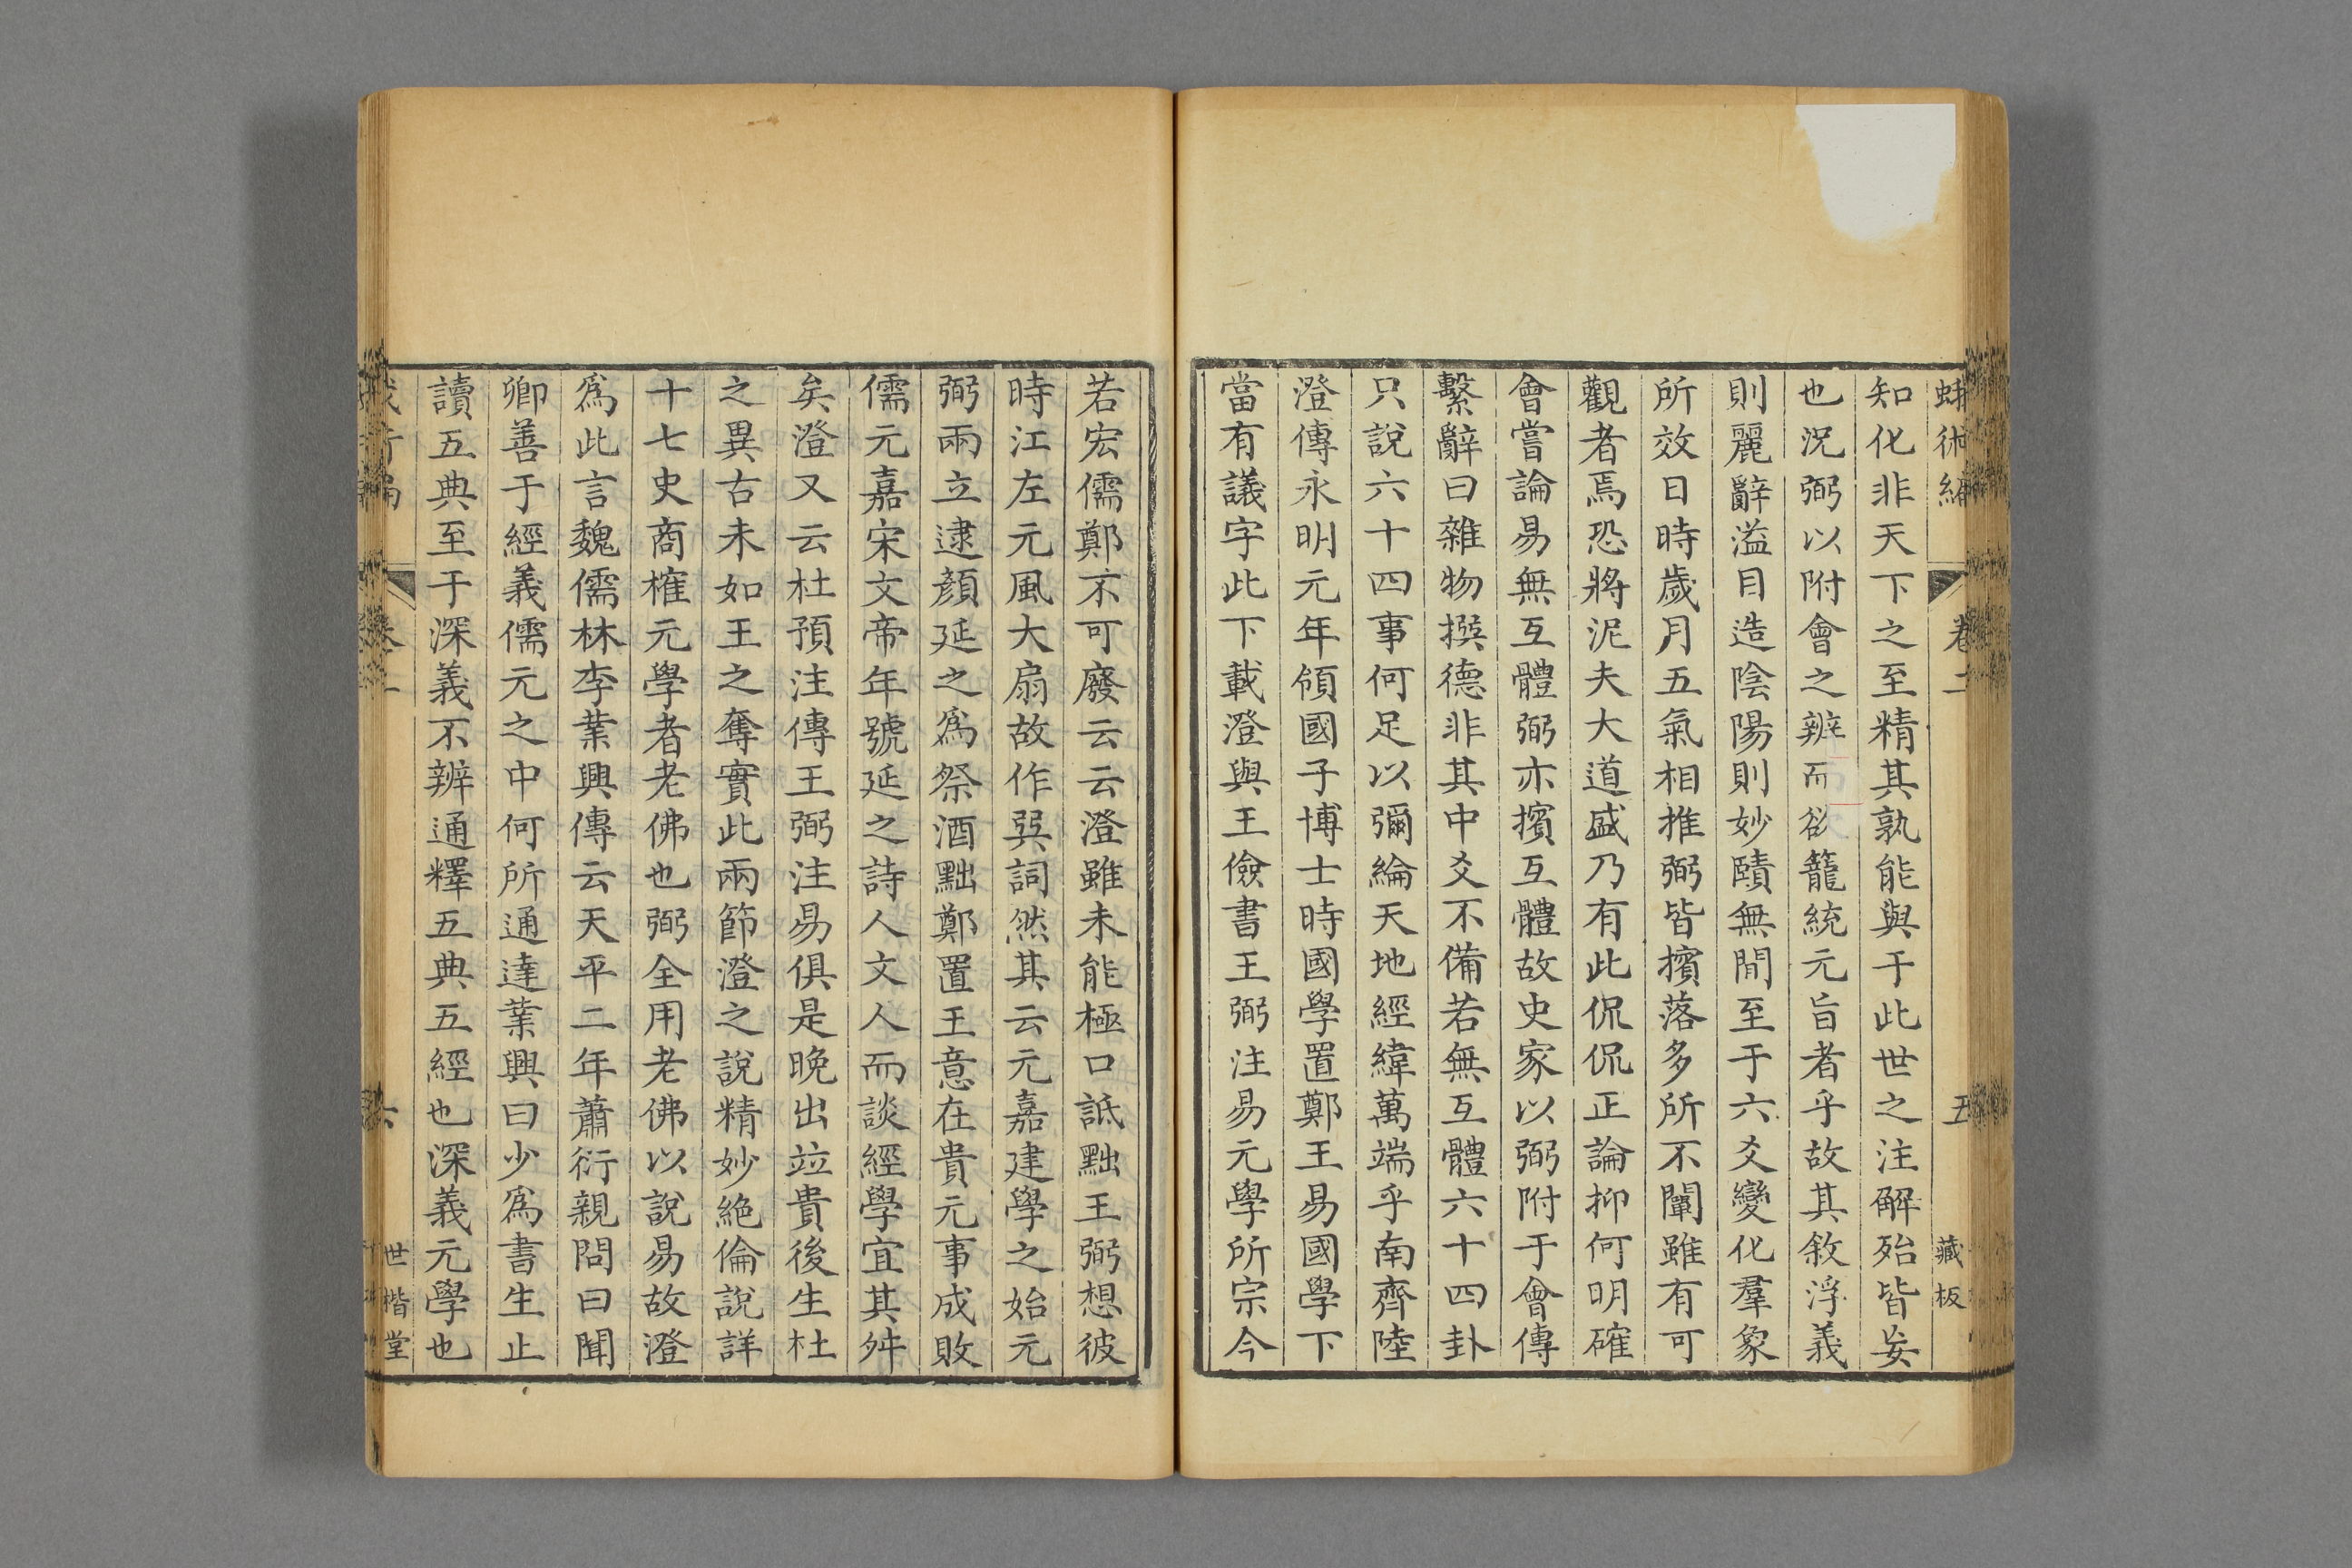 蛾術編 卷二 五 藏板
知化非天下之至精其孰能與于此世之注解殆皆妄
也況弼以附會之辨而欲籠統元旨者乎故其敘浮義
則麗辭溢目造陰陽則妙賾無間至于六爻變化羣象
所效日時歲月五氣相推弼皆擯落多所不關雖有可
觀者焉恐將泥夫大道盛乃有此侃侃正論抑何明確
會嘗論易無互體弼亦擯互體故史家以弼附于會傳
繫辭曰雜物撰德非其中爻不備若無互體六十四卦
只說六十四事何足以彌綸天地經緯萬端乎南齊陸
澄傳永明元年領國子博士時國學置鄭王易國學下
當有議字此下載澄與王儉書王弼注易元學所宗今
若宏儒鄭不可廢云云澄雖未能極口詆黜王弼想彼
時江左元風大扇故作巽詞然其云元嘉建學之始元
弼兩立逮顏延之爲祭酒黜鄭置王意在貴元事成敗
儒元嘉宋文帝年號延之詩人文人而談經學宜其舛
矣澄又云杜預注傳王弼注易俱是晚出竝貴後生杜
之異古未如王之奪實此兩節澄之說精妙絕倫說詳
十七史商榷元學者老佛也弼全用老佛以說易故澄
爲此言魏儒林李業興傳云天平二年蕭衍親問曰聞
卿善于經義儒元之中何所通達業興曰少爲書生止
讀五典至于深義不辨通釋五典五經也深義元學也
世楷堂